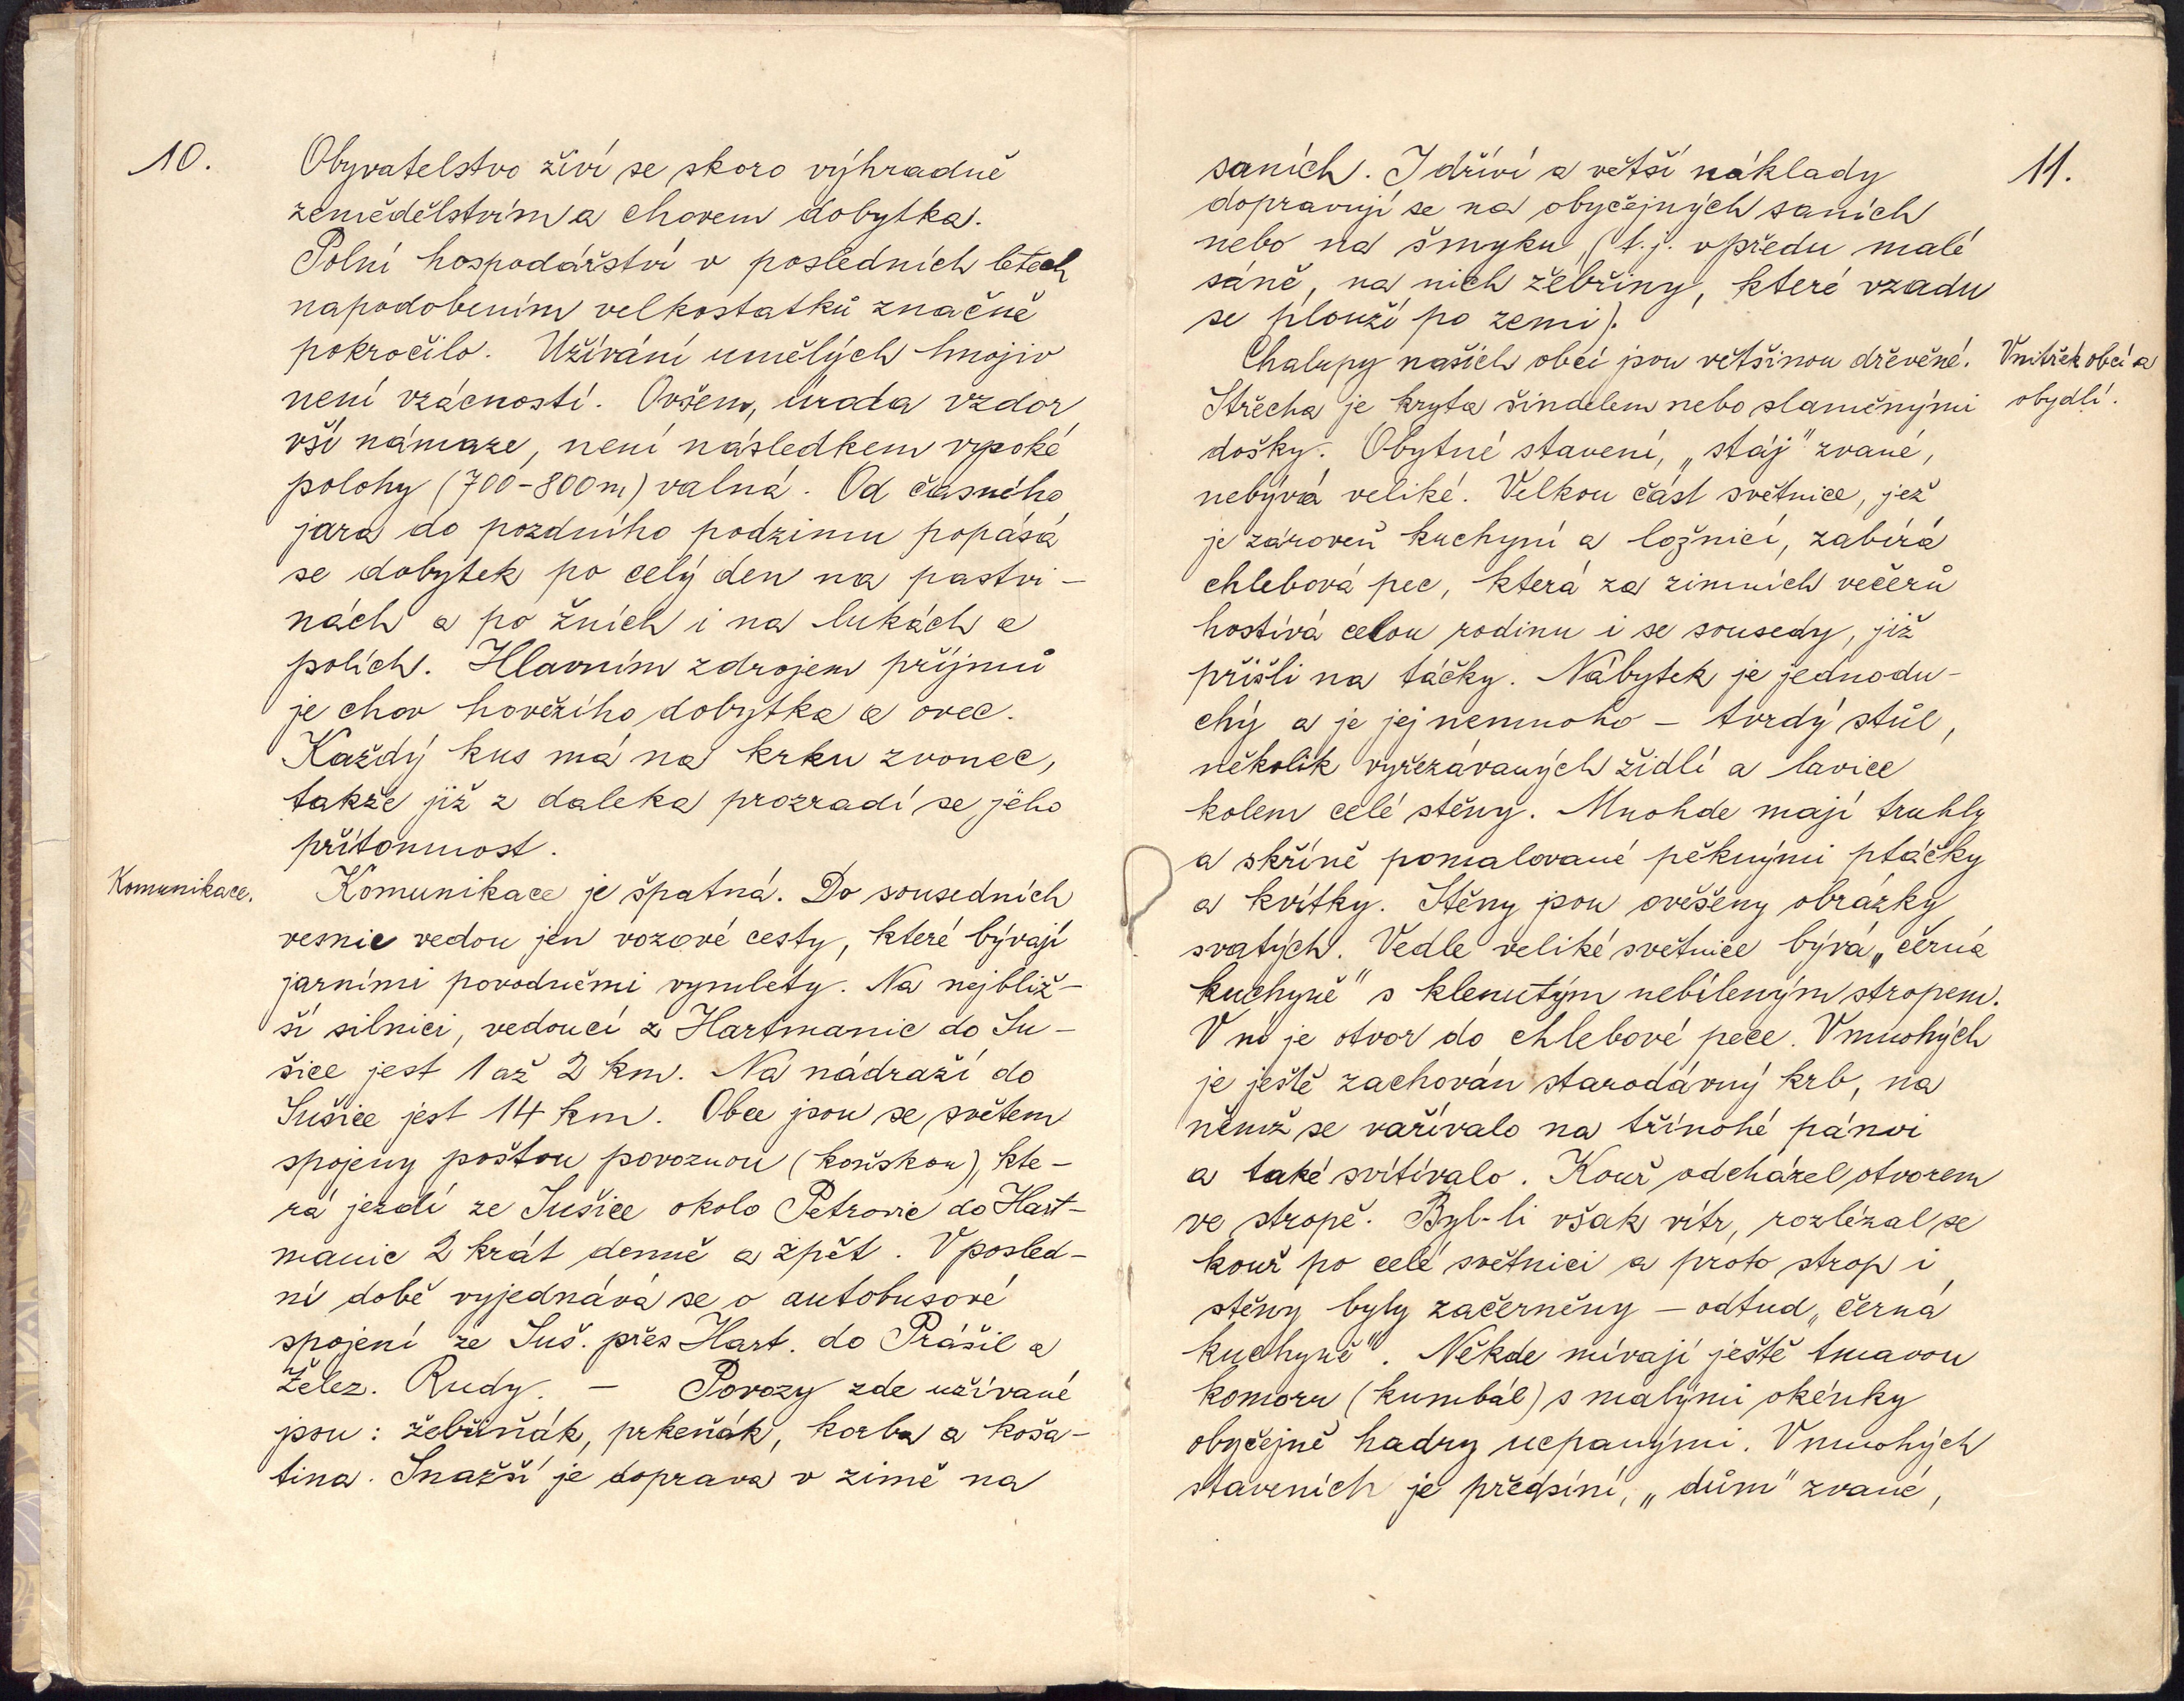 10.
Obyvatelstvo živí se skoro výhradně
zemědělstvím a chovem dobytka.
Polní hospodářství v posledních letech
napodobením velkostatků značně
pokročilo. Užívání umělých hnojiv
není vzácností. Ovšem, úroda vzdor
vší námaze, není následkem vysoké
polohy (700-800m) valná. Od časného
jara do pozdního podzimu popásá
se dobytek po celý den na pastvi-
nách a po žních i na lukách a
polích. Hlavním zdrojem příjmů
je chov hovězího dobytka a ovec.
Každý kus má na krku zvonec,
takže již z daleka prozradí se jeho
přítomnost.
Komunikace.
Komunikace je špatná. Do sousedních
vesnic vedou jen vozové cesty, které bývají
jarními povodněmi vymlety. Na nejbliž-
ší silnici, vedoucí z Hartmanic do Su-
šice jest 1 až 2 km. Na nádraží do
Sušice jest 14 km. Obce jsou se světem
spojeny poštou povoznou (koňskou), kte-
rá jezdí ze Sušice okolo Petrovic do Hart-
manic 2 krát denně a zpět. V posled-
ní době vyjednává se o autobusové
spojení ze Suš. přes Hart. do Prášil a
Želez. Rudy. — Povozy zde užívané
jsou: žebřiňák, prkeňák, korba a koša-
tina. Snažší je doprava v zimě na
11.
saních. I dříví a větší náklady
dopravují se na obyčejných saních
nebo na šmyku (t.j. vpředu malé
sáně, na nich žebřiny, které vzadu
se plouží po zemi).
Vnitřek obcí a
obydlí.
Chalupy našich obcí jsou většinou dřevěné.
Střecha je kryta šindelem nebo slaměnými
došky. Obytné stavení, „stáj" zvané,
nebývá veliké. Velkou část světnice, jež
je zároveň kuchyní a ložnicí, zabírá
chlebová pec, která za zimních večerů
hostívá celou rodinu i se sousedy, již
přišli na táčky. Nábytek je jednodu-
chý a je jej nemnoho – tvrdý stůl,
několik vyřezávaných židlí a lavice
kolem celé stěny. Mnohde mají truhly
a skříně pomalované pěknými ptáčky
a kvítky. Stěny jsou ověšeny obrázky
svatých. Vedle veliké světnice bývá „černá
kuchyně" s klenutým nebíleným stropem.
V ní je otvor do chlebové pece. V mnohých
je ještě zachován starodávný krb, na
němž se vařívalo na třínohé pánvi
a také svítívalo. Kouř odcházel otvorem
ve stropě. Byl-li však vítr, rozlézal se
kouř po celé světnici a proto strop i
stěny byly začerněny – odtud „černá
kuchyně". Někde mívají ještě tmavou
komoru (kumbál) s malými okénky
obyčejně hadry ucpanými. V mnohých
staveních je předsíní, „dům" zvané,